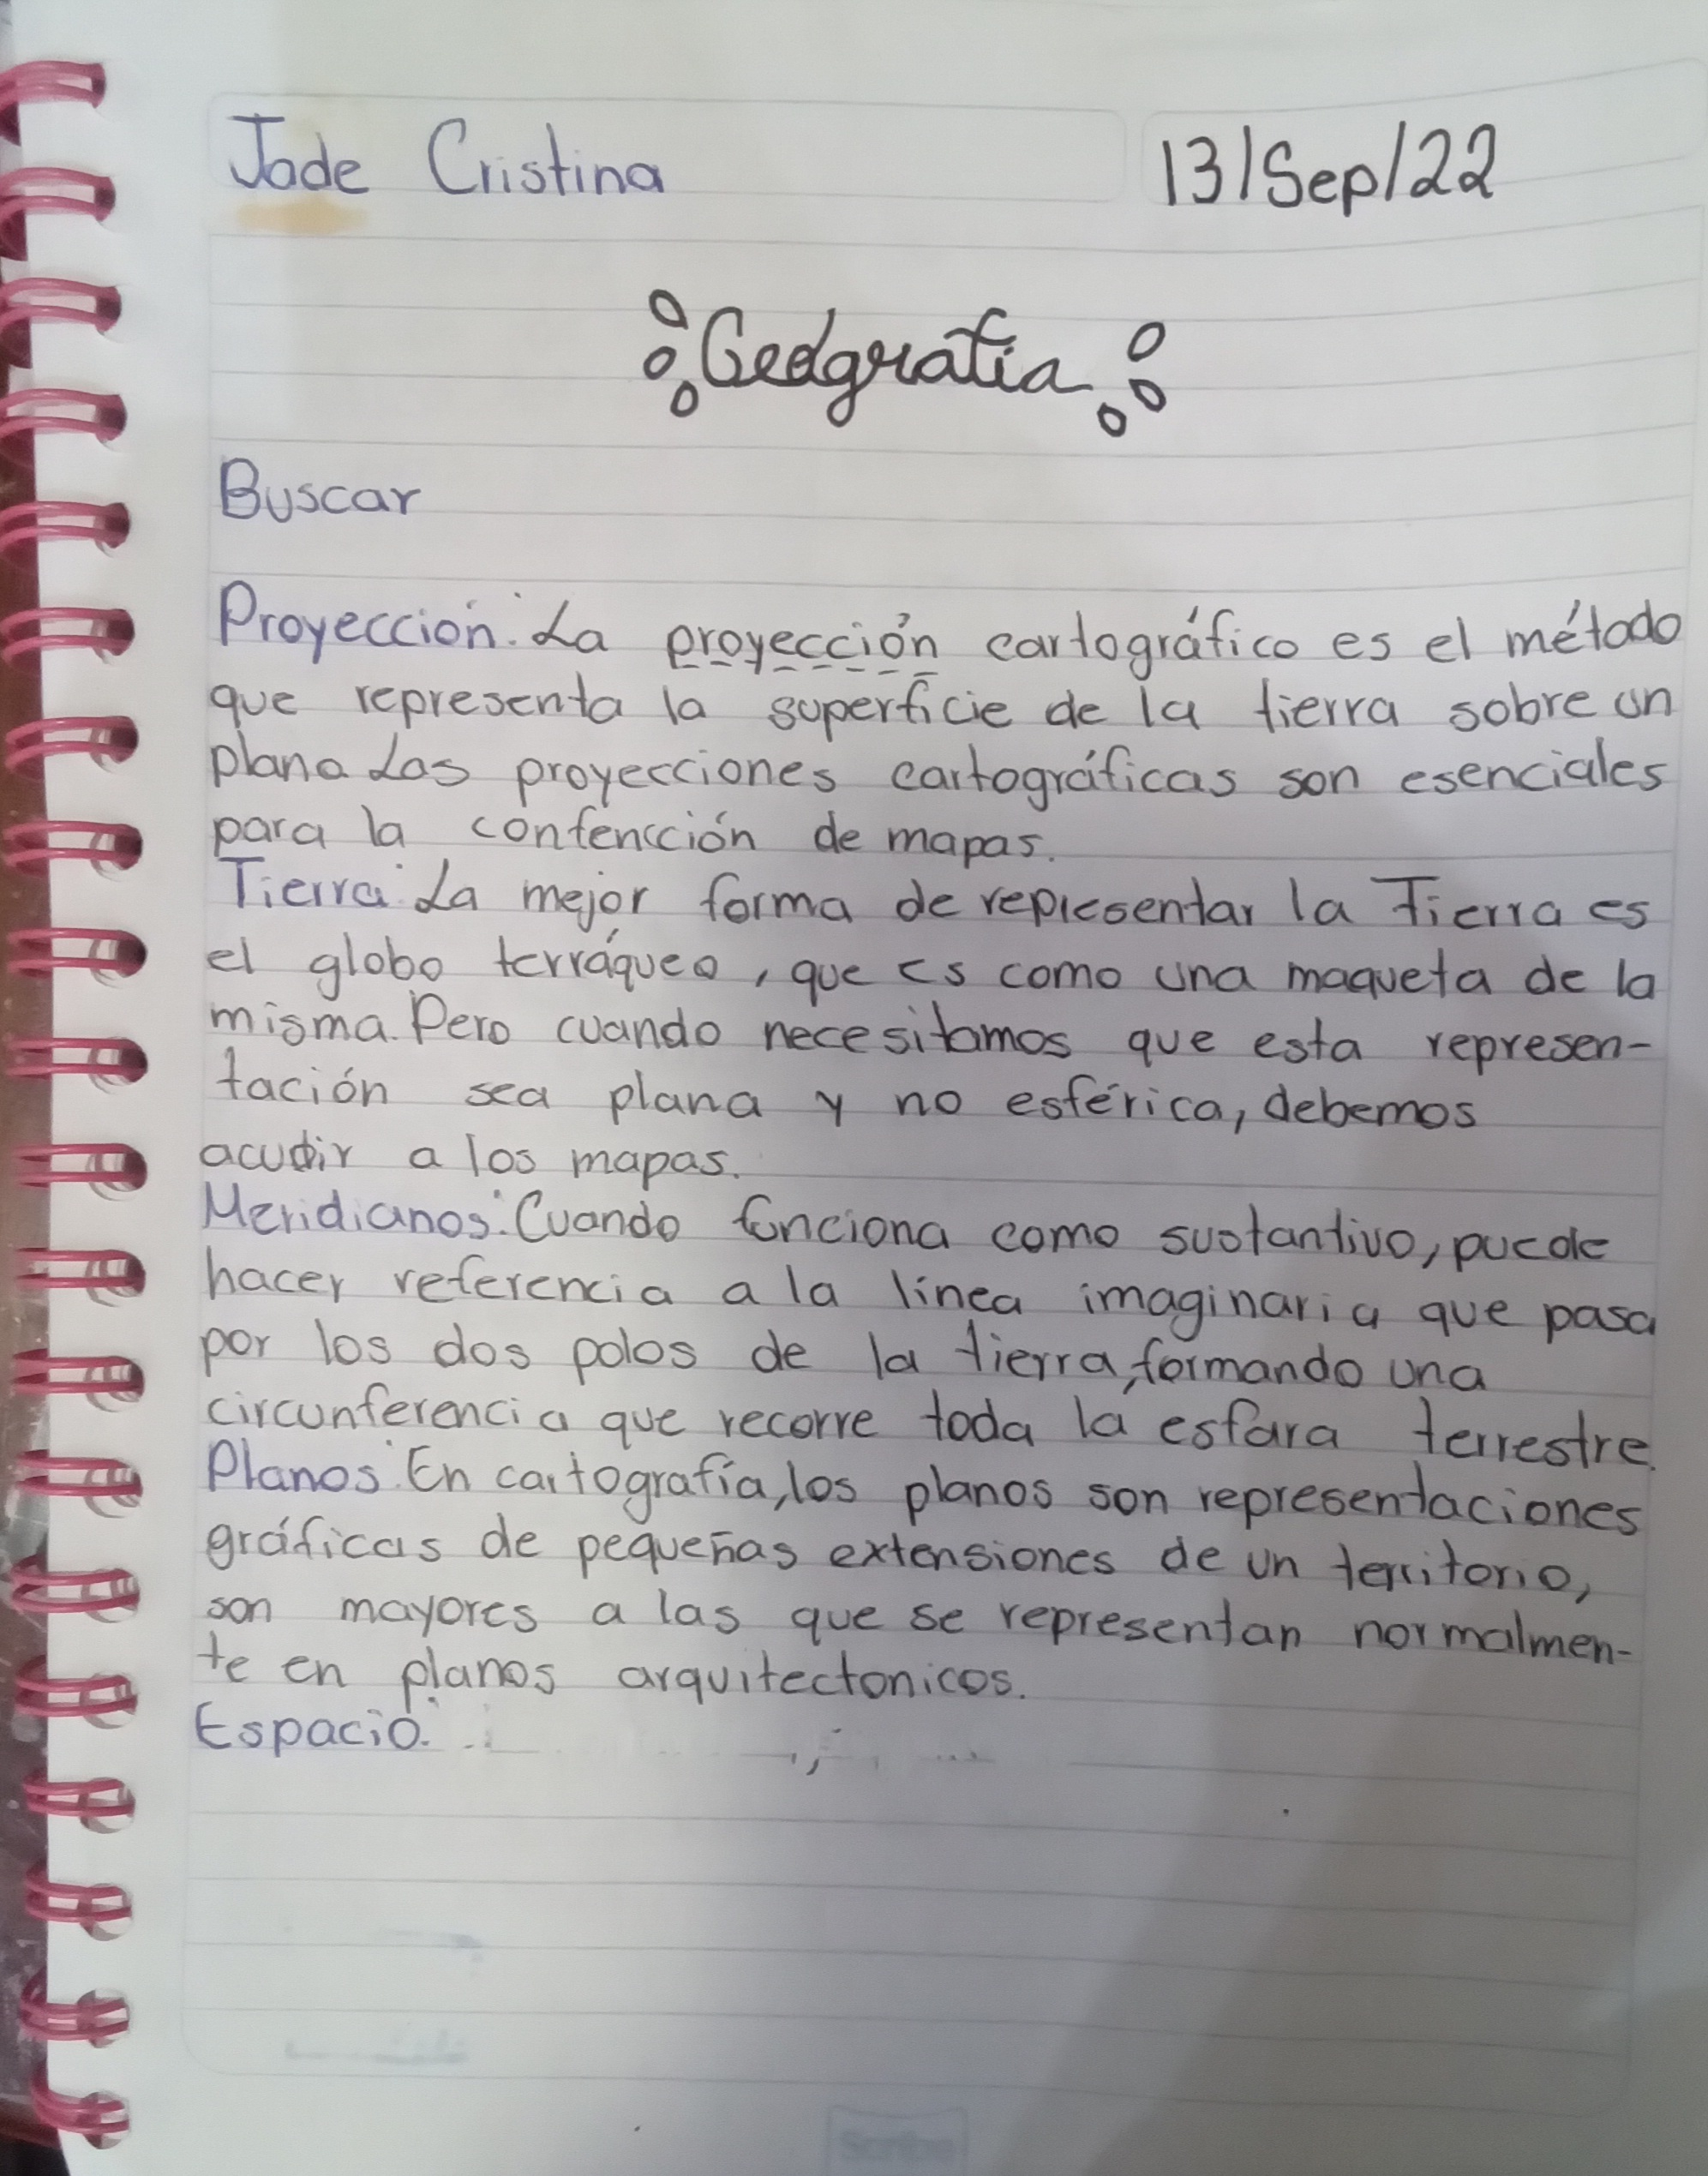 Jade Cristina
13/Sep/22
Geografía
Buscar
Proyección: La proyección cartográfico es el método
que representa la superficie de la tierra sobre un
plano Las proyecciones cartográficas son esenciales
para la confencción de mapas.
Tierra: La mejor forma de representar la Tierra es
el globo terráqueo, que es como una maqueta de la
misma. Pero cuando necesitamos que esta represen-
tación sea plana y no esférica, debemos
acudir a los mapas.
Meridianos: Cuando funciona como sustantivo, puede
hacer referencia a la línea imaginaria que pasa
por los dos polos de la tierra, formando una
circunferencia que recorre toda la esfara terrestre.
Planos: En cartografía, los planos son representaciones
gráficas de pequeñas extensiones de un territorio,
son mayores a las que se representan normalmen-
te en planos arquitectonicos.
Espacio:
Scribe